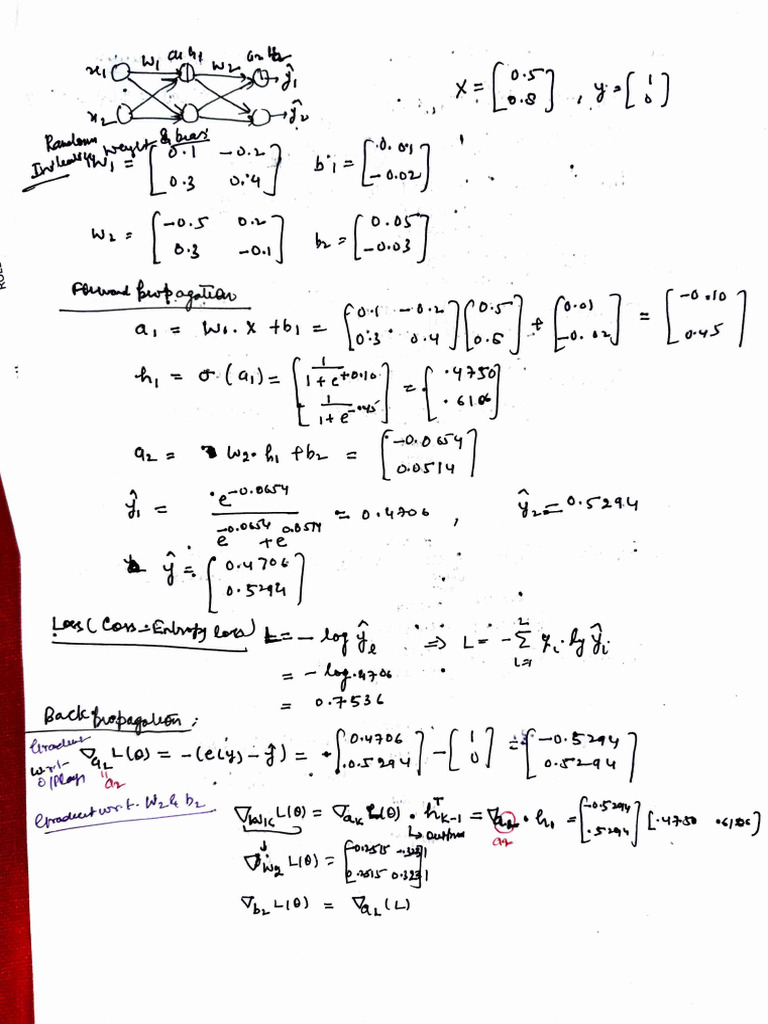 x₁ W₁ a₁ h₁ W₂ a₂ h₂ ŷ₁
x₂ ŷ₂
X = [0.5 0.8] , y = [1 0]
Random Weight & bias
W₁ = [0.1 -0.2 0.3 0.4] b₁ = [0.01 -0.02]
W₂ = [-0.5 0.2 0.3 -0.1] b₂ = [0.05 -0.03]
Forward Propagation
a₁ = W₁. X + b₁ = [0.1 -0.2 0.3 0.4] [0.5 0.8] + [0.01 -0.02] = [-0.10 0.45]
h₁ = σ(a₁) = [1/(1+e^{+0.10}) 1/(1+e^{-0.45})] = [.4750 .6106]
a₂ = W₂. h₁ + b₂ = [-0.0654 0.0514]
ŷ₁ = e^{-0.0654} / (e^{-0.0654} + e^{0.0514}) = 0.4706 , ŷ₂ = 0.5294
ŷ = [0.4706 0.5294]
Loss (Coss-Entropy loss) L = - log ŷ_l ⇒ L = -∑_{i=1}^{2} y_i . log ŷ_i
= - log .4706
= 0.7536
Back Propagation :
Gradient w.r.t. o/p layer ∇_{a_L} L(θ) = -(e(y) - ŷ) = [0.4706 0.5294] - [1 0] = [-0.5294 0.5294]
a₂
Gradient w.r.t. W₂ & b₂ ∇_{W_k} L(θ) = ∇_{a_k} L(θ) . h^T_{k-1} = ∇_{a₂} . h₁ = [-0.5294 .5294] [.4750 .6106]
↳ output a₂
∇_{W₂} L(θ) = [-0.2515 -.3231 0.2515 0.3231]
∇_{b₂} L(θ) = ∇_{a_L} (L)